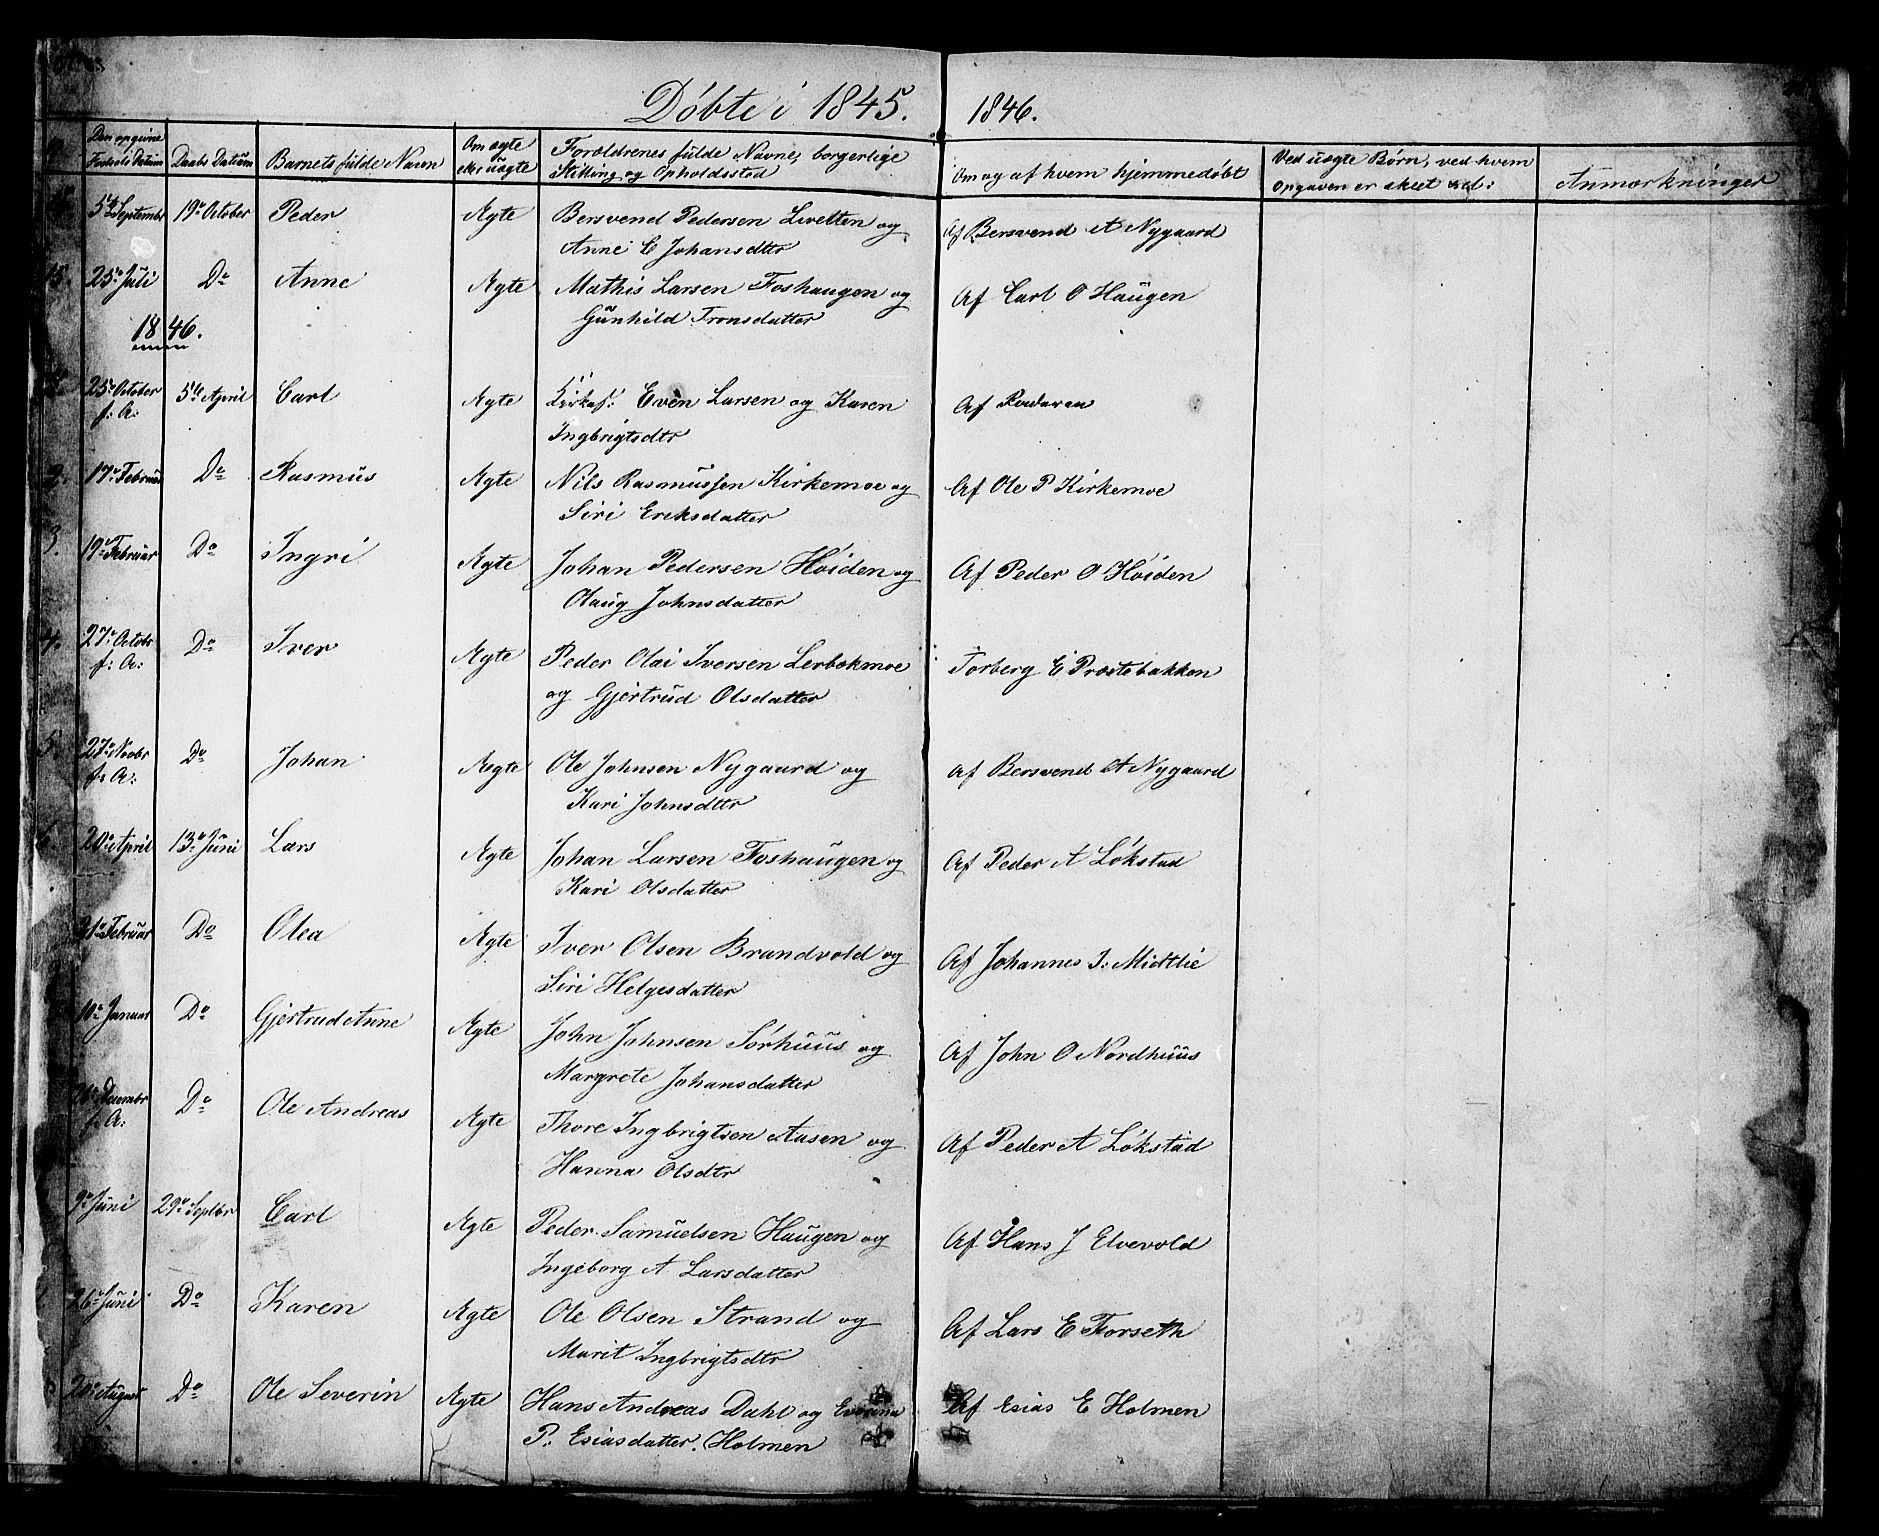 Döbte i 1845. 1846.
Den opgivne Fødsels Datum | Daabs Datum | Barnets fulde Navn | Om ægte eller uægte | Forældrenes fulde Navne, borgerlige Stilling og Opholdssted | Om og af hvem hjemmedøbt | Ved uægte Børn, ved hvem Opgaven er skeet | Anmærkninger
5te Septembr 19de October Peder Ægte Bersvend Pedersen Livelten og Af Bersvend A Nygaard
Anne C Johansdttr
15. 25de Juli Do Anne Ægte Mathis Larsen Foshaugen og Af Carl O Haugen
Gunhild Tronsdatter
1846.
25de October 5te April Carl Ægte Kirkes: Even Larsen og Karen Af Faderen
f: A: Ingbrigtsdtr
2. 17de Februar Do Rasmus Ægte Nils Rasmussen Kirkemoe og Af Ole P Kirkemoe
Siri Eriksdatter
3. 19de Februar Do Ingri Ægte Johan Pedersen Høiden og Af Peder O Høiden
Olaug Johnsdatter
4. 27de Octobr Do Iver Ægte Peder Olai Iversen Lerbekmoe Torberg E Præstebakken
f: A: og Gjertrud Olsdatter
5. 27de Novbr Do Johan Ægte Ole Johnsen Nygaard og Af Bersvend A Nygaard
f: A: Kari Johnsdttr
6. 20de April 13de Juni Lars Ægte Johan Larsen Foshaugen og Af Peder A Løkstad
Kari Olsdatter
21de Februar Do Olea Ægte Iver Olsen Brandvold og Af Johannes I: Midtlie
Siri Helgesdatter
10de Januar Do Gjertrud Anne Ægte John Johnsen Sørhuus og Af John O Nordhuus
Margrete Johansdatter
26de Decembr Do Ole Andreas Ægte Thore Ingbrigtsen Aasen og Af Peder A Løkstad
f: A: Hanna Olsdtr
9de Juni 29de Septbr Carl Ægte Peder Samuelsen Haugen og Af Hans J Elvevold
Ingeborg A Larsdatter
26de Juni Do Karen Ægte Ole Olsen Strand og Af Lars E Forseth
Marit Ingbrigtsdtr
20de August Do Ole Severin Ægte Hans Andreas Dahl og Everina Af Esias E Holmen
P. Esiasdatter. Holmen